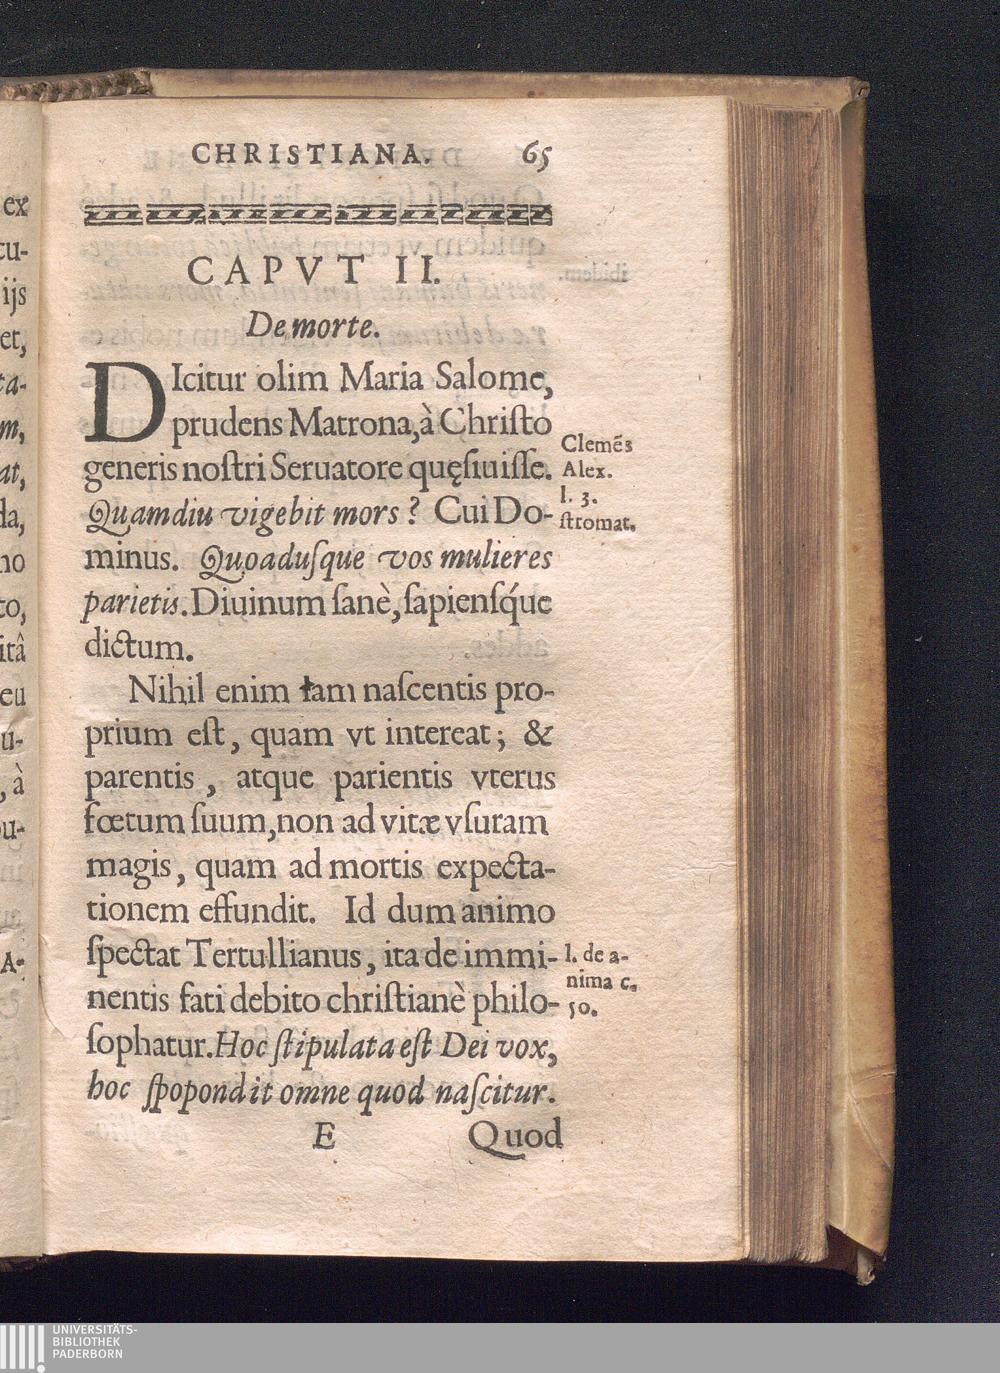 CHRISTIANA. 65
CAPVT II.
De morte.
DIcitur olim Maria Salome,
prudens Matrona, à Chriſto
generis noſtri Seruatore quęſiuiſſe.
Quamdiu vigebit mors? Cui Do-
minus. Quoaduſque vos mulieres
parietis. Diuinum ſanè, ſapienſq́ue
dictum.
Clemẽs
Alex.
l. 3.
ſtromat.
Nihil enim tam naſcentis pro-
prium eſt, quam vt intereat; &
parentis, atque parientis vterus
fœtum ſuum, non ad vitæ vſuram
magis, quam ad mortis expecta-
tionem effundit. Id dum animo
ſpectat Tertullianus, ita de immi-
nentis fati debito chriſtianè philo-
ſophatur. Hoc ſtipulata eſt Dei vox,
hoc ſpopondit omne quod naſcitur.
l. de a-
nima c.
50.
E Quod
ex
cu-
ijs
et,
ta-
m,
at,
da,
no
to,
itâ
eu
u-
, à
ou-
A-
UNIVERSITÄTS-
BIBLIOTHEK
PADERBORN